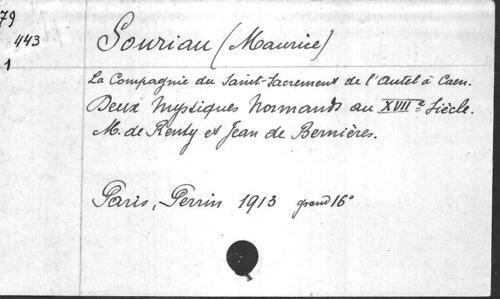 79
443
1
Souriau (Maurice)
La Compagnie du Saint-Sacrement de l'Autel à Caen.
Deux Mystiques Normands au XVIIe Siècle.
M. de Renty et Jean de Bernières.
Paris, Perrin 1913 grand 16°